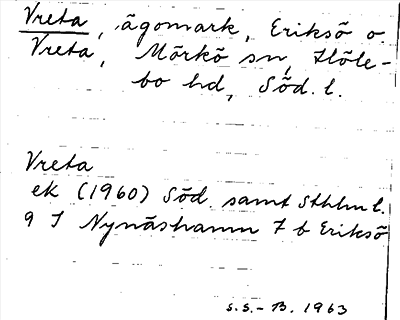 Vreta, ägomark, Eriksö o.
Vreta, Mörkö sn, Höle-
bo hd, Söd. l.
Vreta
ek (1960) Söd. samt Sthlm l.
9 I Nynäshamn 7 b Eriksö
S.S.-B. 1963